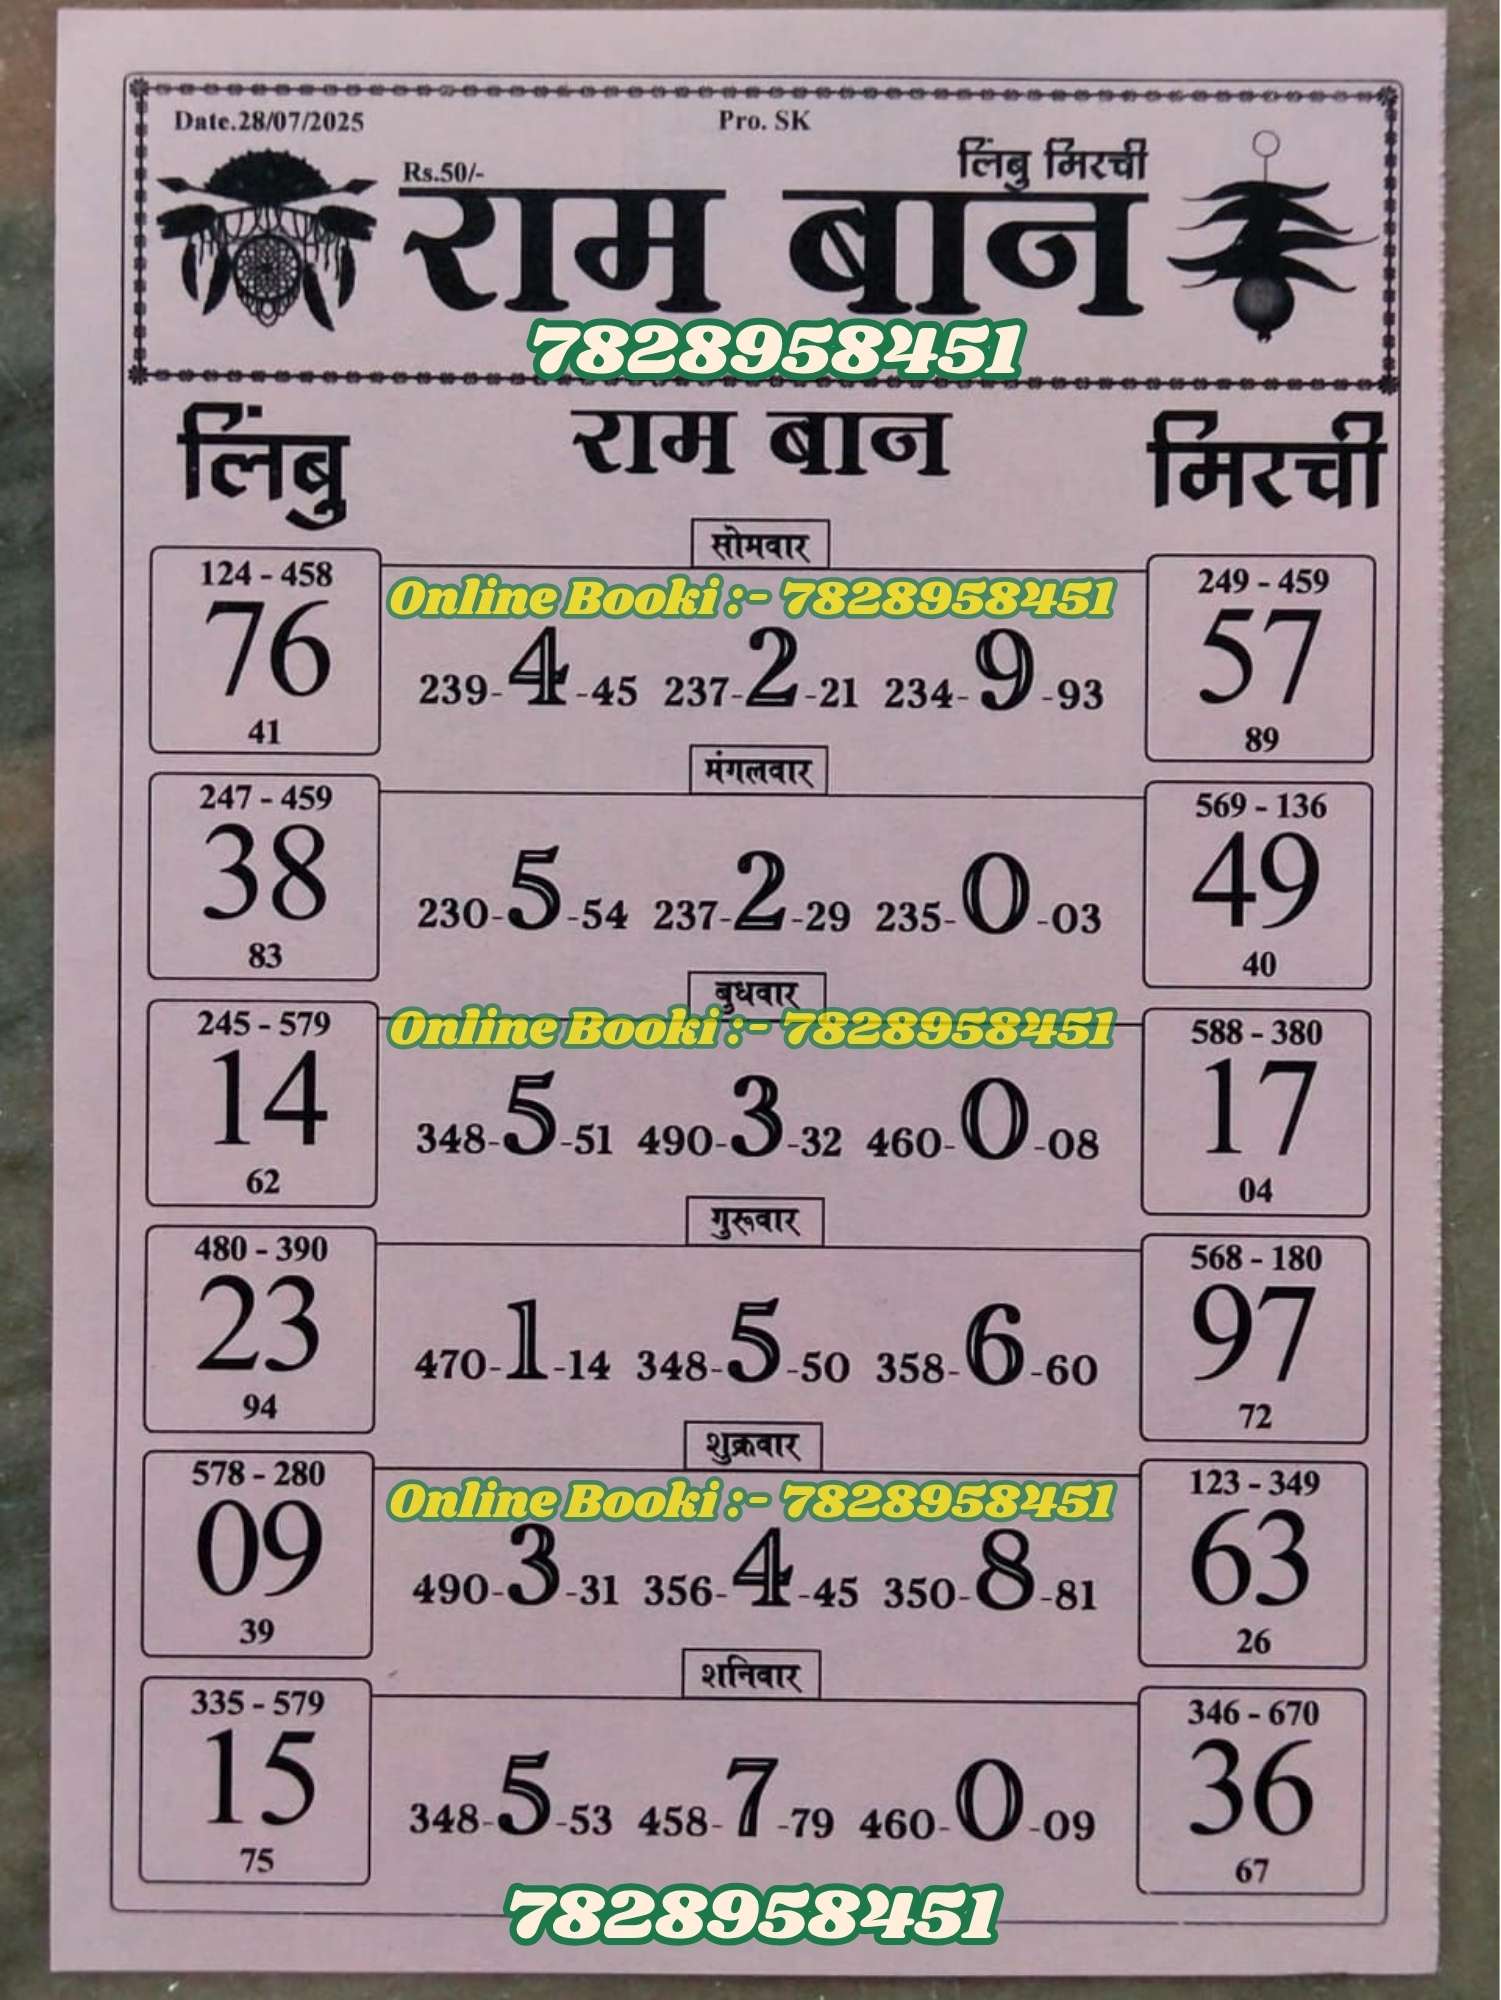 Date.28/07/2025
Pro. SK
Rs.50/-
लिंबु मिरची
राम बान
7828958451
लिंबु
राम बान
मिरची
सोमवार
124 - 458
76
41
Online Booki :- 7828958451
239-4-45 237-2-21 234-9-93
249 - 459
57
89
मंगलवार
247 - 459
38
83
230-5-54 237-2-29 235-0-03
569 - 136
49
40
बुधवार
245 - 579
14
62
Online Booki :- 7828958451
348-5-51 490-3-32 460-0-08
588 - 380
17
04
गुरूवार
480 - 390
23
94
470-1-14 348-5-50 358-6-60
568 - 180
97
72
शुक्रवार
578 - 280
09
39
Online Booki :- 7828958451
490-3-31 356-4-45 350-8-81
123 - 349
63
26
शनिवार
335 - 579
15
75
348-5-53 458-7-79 460-0-09
346 - 670
36
67
7828958451